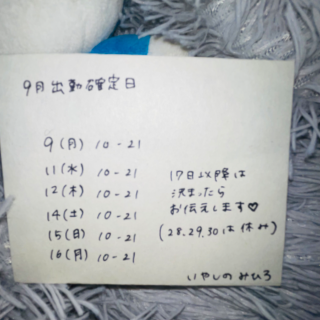 9月出勤確定日
9(月) 10-21
11(水) 10-21
12(木) 10-21
14(土) 10-21
15(日) 10-21
16(月) 10-21
17日以降は
決まったら
お伝えします♡
(28.29.30は休み)
いやしの みひろ